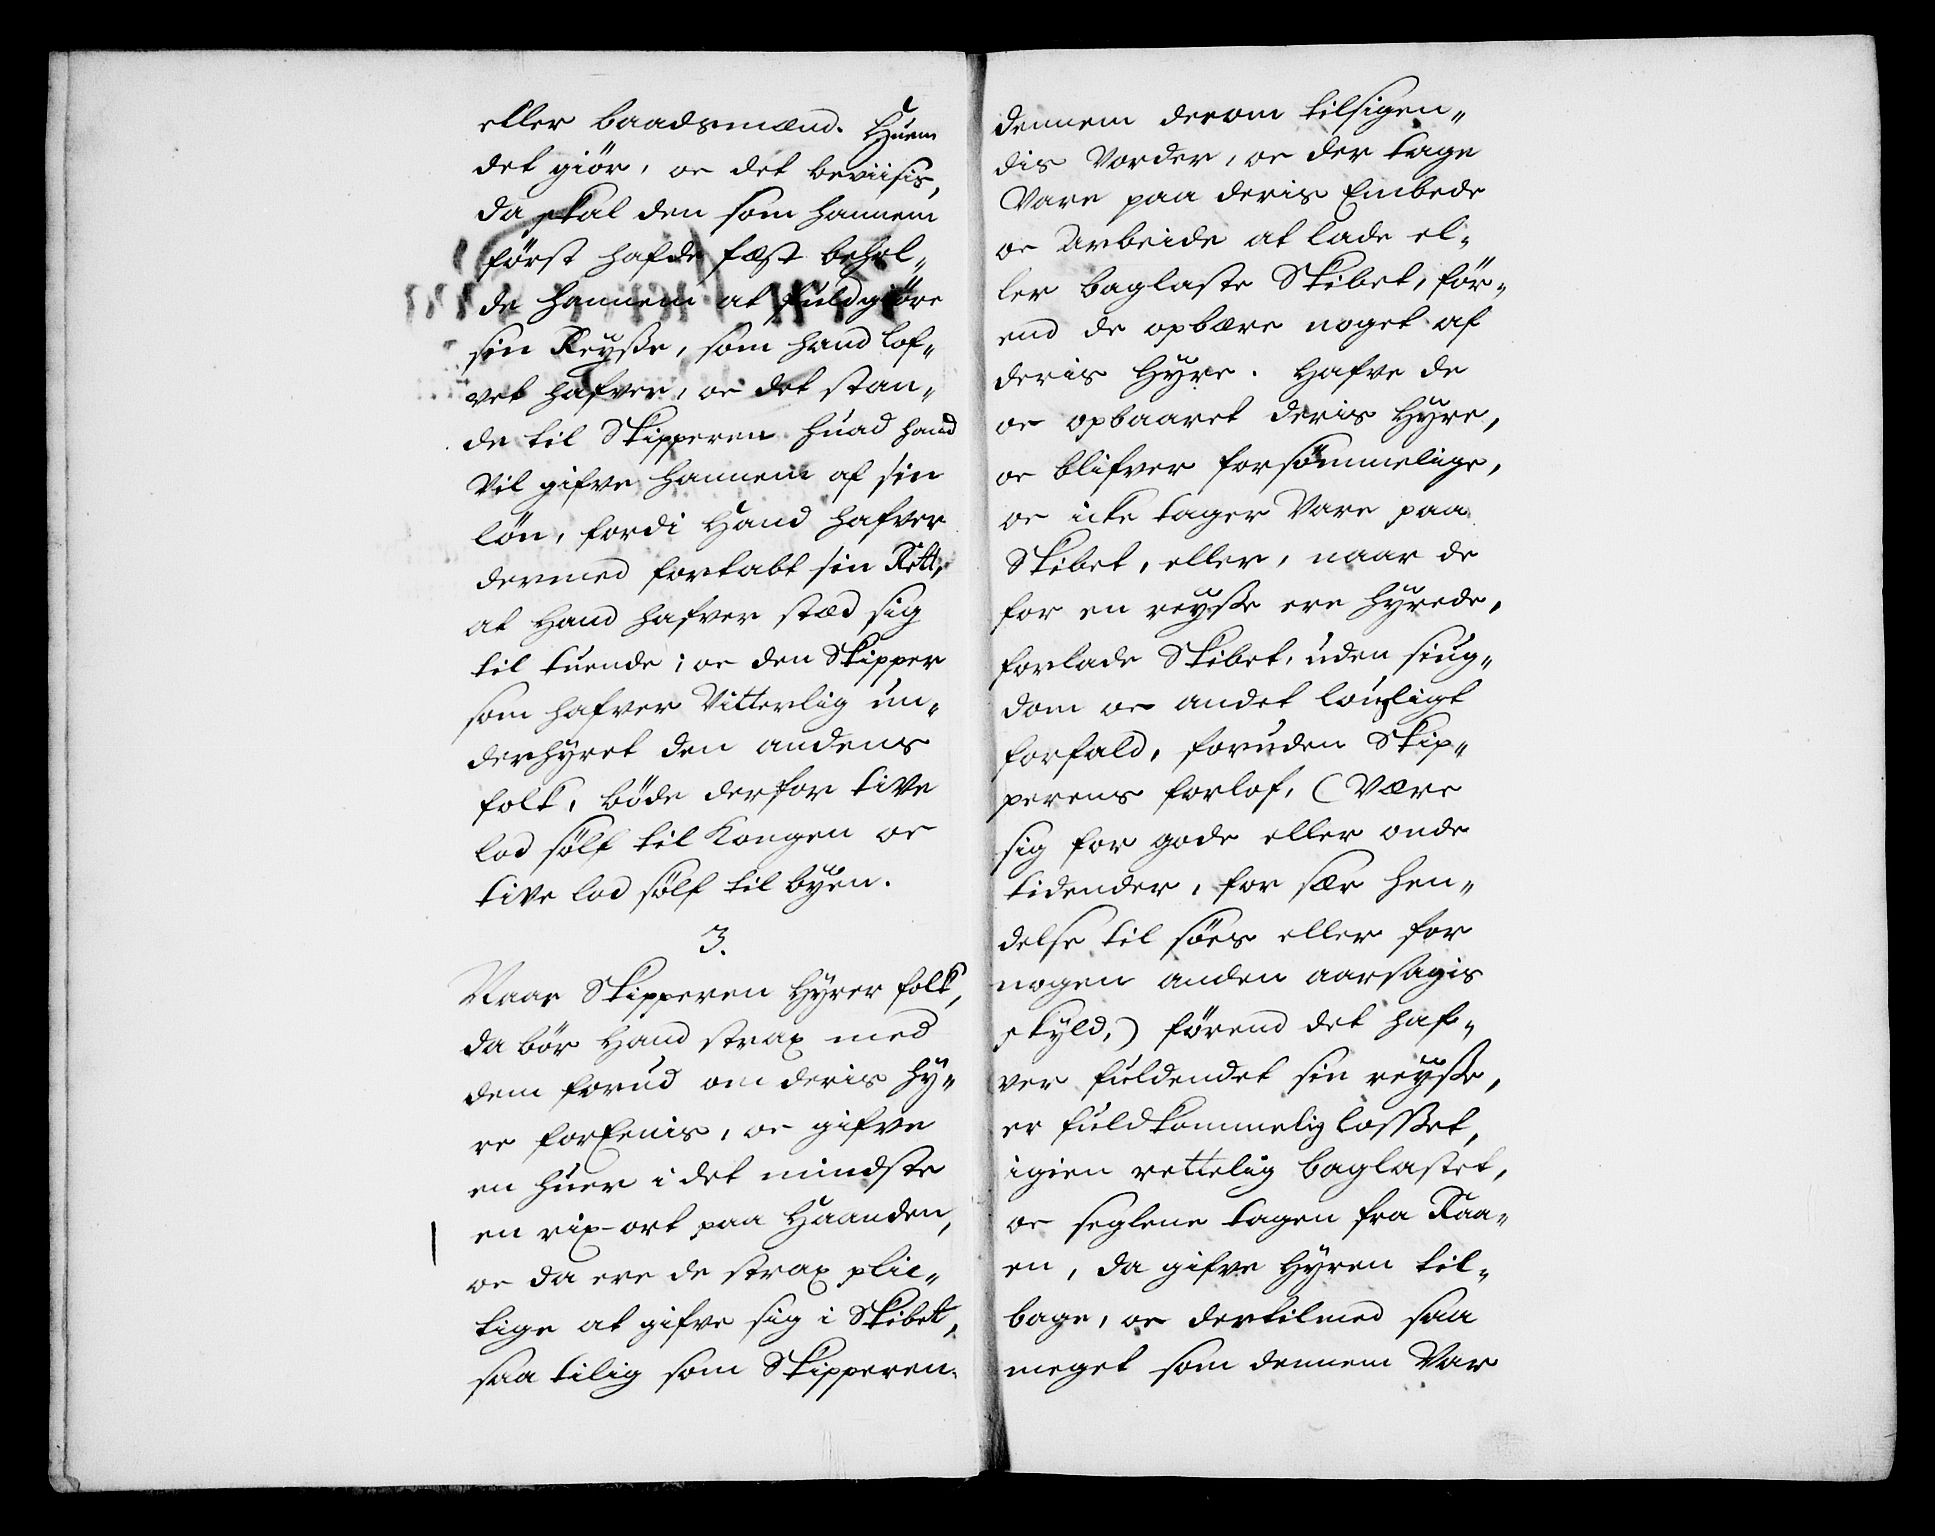 eller baadsmænd. Huem
det giör, oc det beviisis,
da skal den som hannem
först hafde fæst behol„
de hannem at fuldgiöre
sin Reysse, som hand lof„
vet hafver, oc det stan„
de til Skipperen huad hand
Vil gifve hannem af sin
lön, fordi Hand hafver
dermed fortabt sin Rett,
at Hand hafver stæd sig
til tuende; oc den Skipper
som hafver Vitterlig un„
derhyret den andens
folk, böde derfor tive
lod sölf til Kongen oc
tive lod sölf til byen.
3.
Naar Skipperen Hyrer folk,
da bör Hand strax med
dem forud om deris Hy„
re forEenis, oc gifve
en huer i det mindste
en rix-ort paa Haanden,
oc da ere de strax plic„
tige at gifve sig i Skibet,
saa tilig som Skipperen
dennem derom tilsigen„
dis Vorder, oc der tage
Vare paa deris Embede
oc Arbeide at lade el„
ler baglaste Skibet, för„
end de opbære noget af
deris Hyre. Hafve de
oc opbaaret deris Hyre,
oc blifver forsömmelige,
oc icke tager Vare paa
Skibet, eller, naar de
for en reysse ere hyrede,
forlade Skibet, uden siug„
dom oc andet louligt
forfald, foruden Skip„
perens forlof, (Være
sig for gode eller onde
tidender, for sær hen„
delse til söes eller for
nogen anden aarsagis
skyld,) förend det haf„
ver fuldendet sin reysse,
er fuldkommelig losset,
igien rettelig baglastet,
oc seglene tagen fra Raa„
en, da gifve Hyren til„
bage, oc dertilmed saa
meget som dennem Var